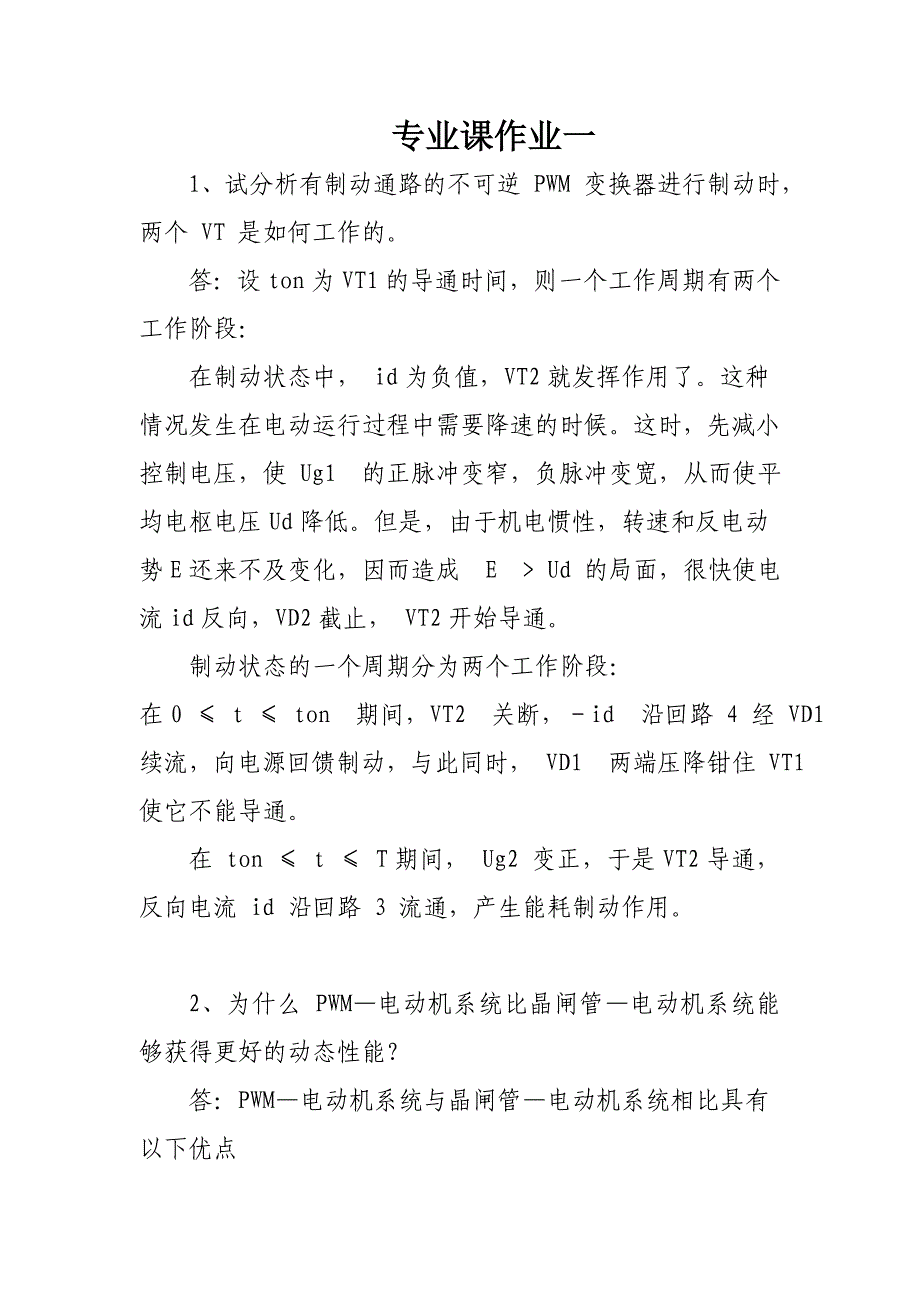 专业课作业一
1、试分析有制动通路的不可逆 PWM 变换器进行制动时，
两个 VT 是如何工作的。
答：设ton为VT1的导通时间，则一个工作周期有两个
工作阶段：
在制动状态中， id为负值，VT2就发挥作用了。这种
情况发生在电动运行过程中需要降速的时候。这时，先减小
控制电压，使 Ug1 的正脉冲变窄，负脉冲变宽，从而使平
均电枢电压Ud降低。但是，由于机电惯性，转速和反电动
势E还来不及变化，因而造成 E > Ud 的局面，很快使电
流id反向，VD2截止， VT2开始导通。
制动状态的一个周期分为两个工作阶段：
在0 ≤ t ≤ ton 期间，VT2 关断，－id 沿回路 4 经 VD1
续流，向电源回馈制动，与此同时， VD1 两端压降钳住 VT1
使它不能导通。
在 ton ≤ t ≤ T期间， Ug2 变正，于是VT2导通，
反向电流 id 沿回路 3 流通，产生能耗制动作用。
2、为什么 PWM—电动机系统比晶闸管—电动机系统能
够获得更好的动态性能？
答：PWM—电动机系统与晶闸管—电动机系统相比具有
以下优点